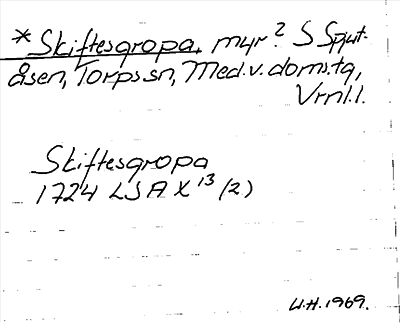 *Skiftesgropa, myr? S Spjut-
åsen, Torps sn, Med.v. doms.tg,
Vrml.l.
Skiftesgropa
1724 LSA X 13 (2)
U.H. 1969.